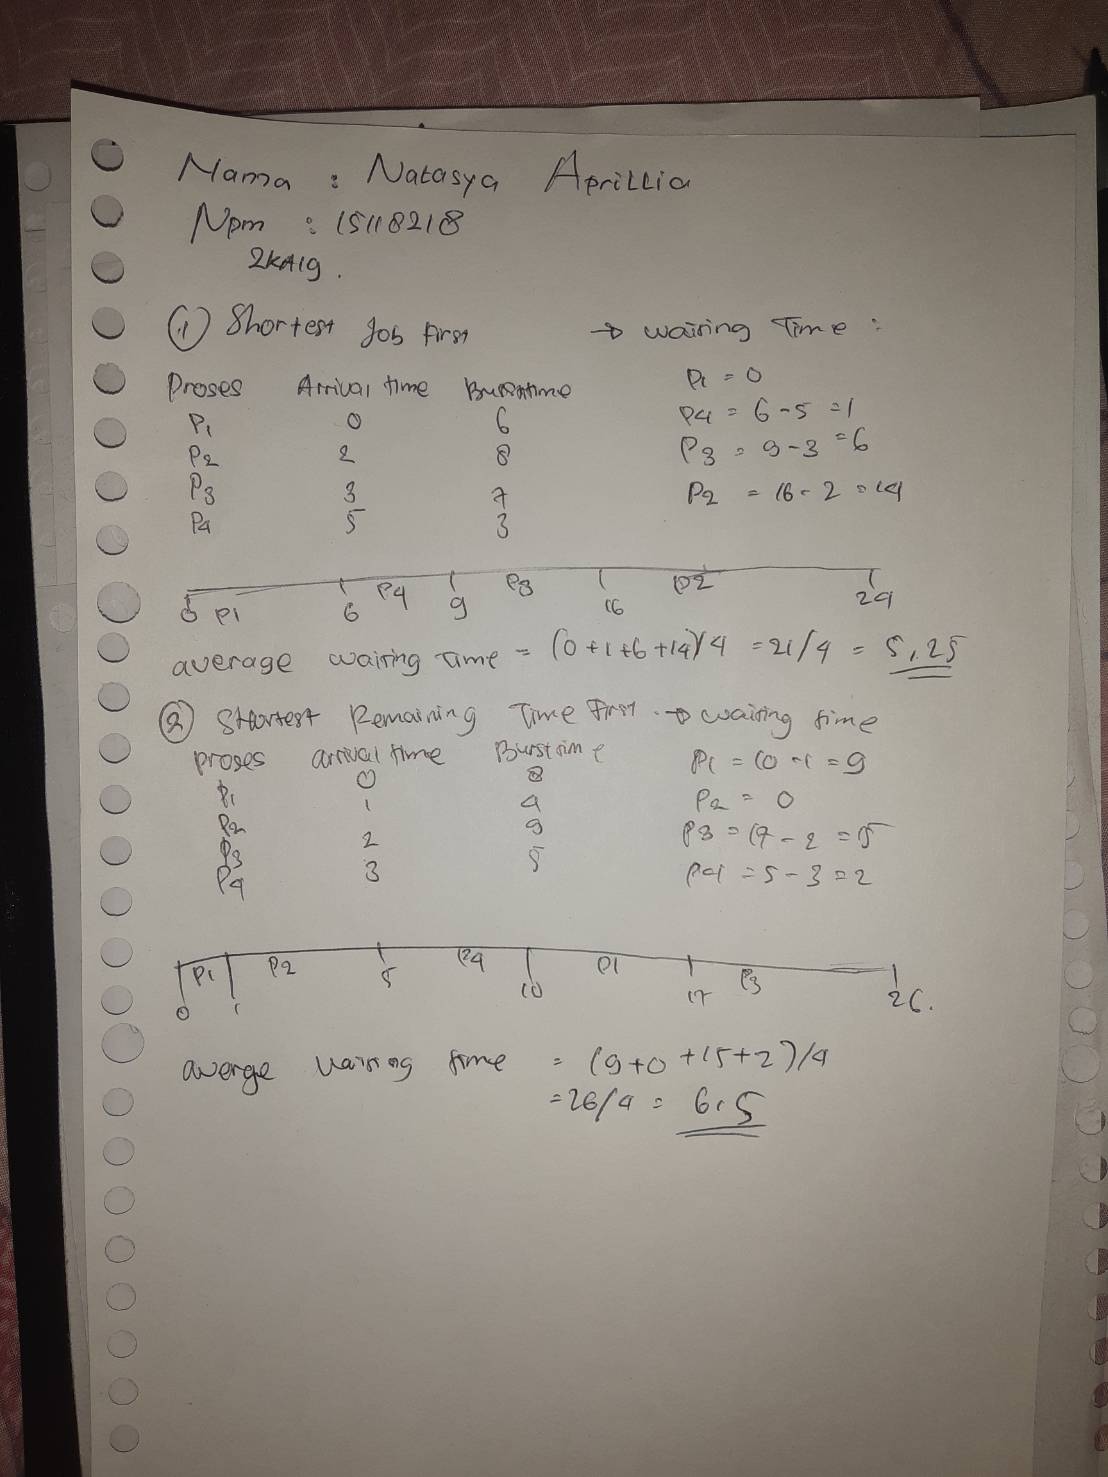 Nama : Natasya Aprillia
Npm : 15118218
2KA19.
① Shortest Job First → waiting Time :
Proses Arrival time Bursttime
P1 0 6
P2 2 8
P3 3 7
P4 5 3
P1 = 0
P4 = 6-5 = 1
P3 = 9-3 = 6
P2 = 16-2 = 14
P1 P4 P3 P2
0 6 9 16 24
average waiting Time = (0+1+6+14)/4 = 21/4 = 5,25
② Shortest Remaining Time First → waiting time
proses arrival time Burst time
P1 0 8
P2 1 4
P3 2 9
P4 3 5
P1 = 10-1 = 9
P2 = 0
P3 = 17-2 = 15
P4 = 5-3 = 2
P1 P2 P4 P1 P3
0 1 5 10 17 26.
averge waiting time = (9+0+15+2)/4
= 26/4 = 6,5